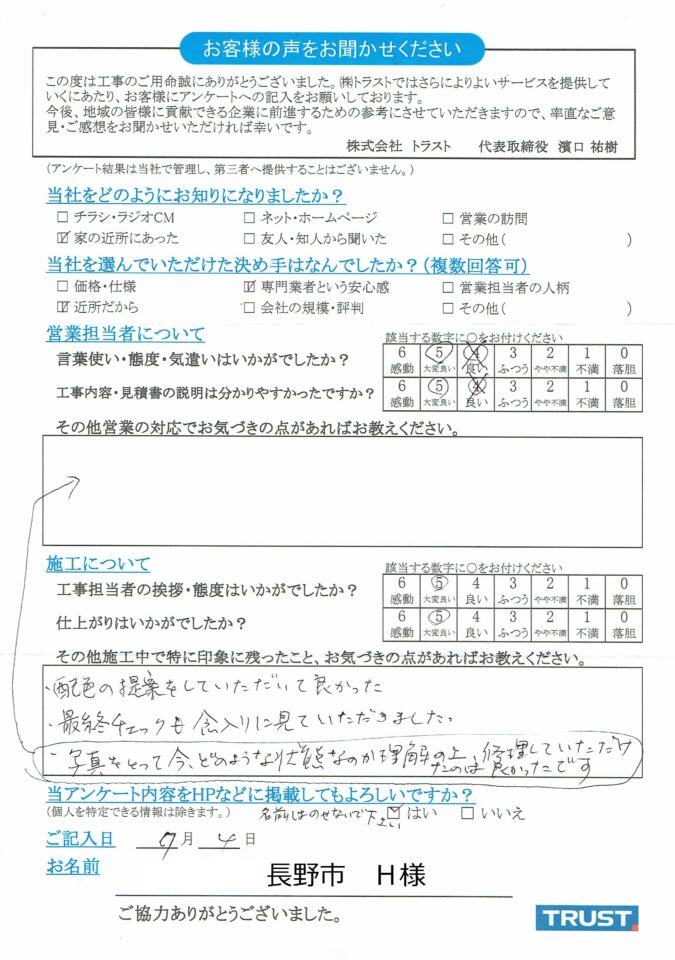 お客様の声をお聞かせください
この度は工事のご用命誠にありがとうございました。㈱トラストではさらによりよいサービスを提供して
いくにあたり、お客様にアンケートへの記入をお願いしております。
今後、地域の皆様に貢献できる企業に前進するための参考にさせていただきますので、率直なご意
見・ご感想をお聞かせいただければ幸いです。
株式会社 トラスト 代表取締役 濱口 祐樹
(アンケート結果は当社で管理し、第三者へ提供することはございません。)
当社をどのようにお知りになりましたか？
□ チラシ・ラジオCM □ ネット・ホームページ □ 営業の訪問
☑ 家の近所にあった □ 友人・知人から聞いた □ その他( )
当社を選んでいただけた決め手はなんでしたか？(複数回答可)
□ 価格・仕様 ☑ 専門業者という安心感 □ 営業担当者の人柄
☑ 近所だから □ 会社の規模・評判 □ その他( )
営業担当者について 該当する数字に○をお付けください
言葉使い・態度・気遣いはいかがでしたか？ 6 5 4 3 2 1 0
感動 大変良い 良い ふつう やや不満 不満 落胆
工事内容・見積書の説明は分かりやすかったですか？ 6 5 4 3 2 1 0
感動 大変良い 良い ふつう やや不満 不満 落胆
その他営業の対応でお気づきの点があればお教えください。
施工について 該当する数字に○をお付けください
工事担当者の挨拶・態度はいかがでしたか？ 6 5 4 3 2 1 0
感動 大変良い 良い ふつう やや不満 不満 落胆
仕上がりはいかがでしたか？ 6 5 4 3 2 1 0
感動 大変良い 良い ふつう やや不満 不満 落胆
その他施工中で特に印象に残ったこと、お気づきの点があればお教えください。
・配色の提案をしていただいて良かった
・最終チェックも念入りに見ていただきました。
・写真をとって今、どのような状態なのか理解の上、修理していただけ
たのは良かったです
当アンケート内容をHPなどに掲載してもよろしいですか？
(個人を特定できる情報は除きます。) 名前はのせないで下さい ☑ はい □ いいえ
ご記入日 7月 4日
お名前 長野市 H様
ご協力ありがとうございました。
TRUST.